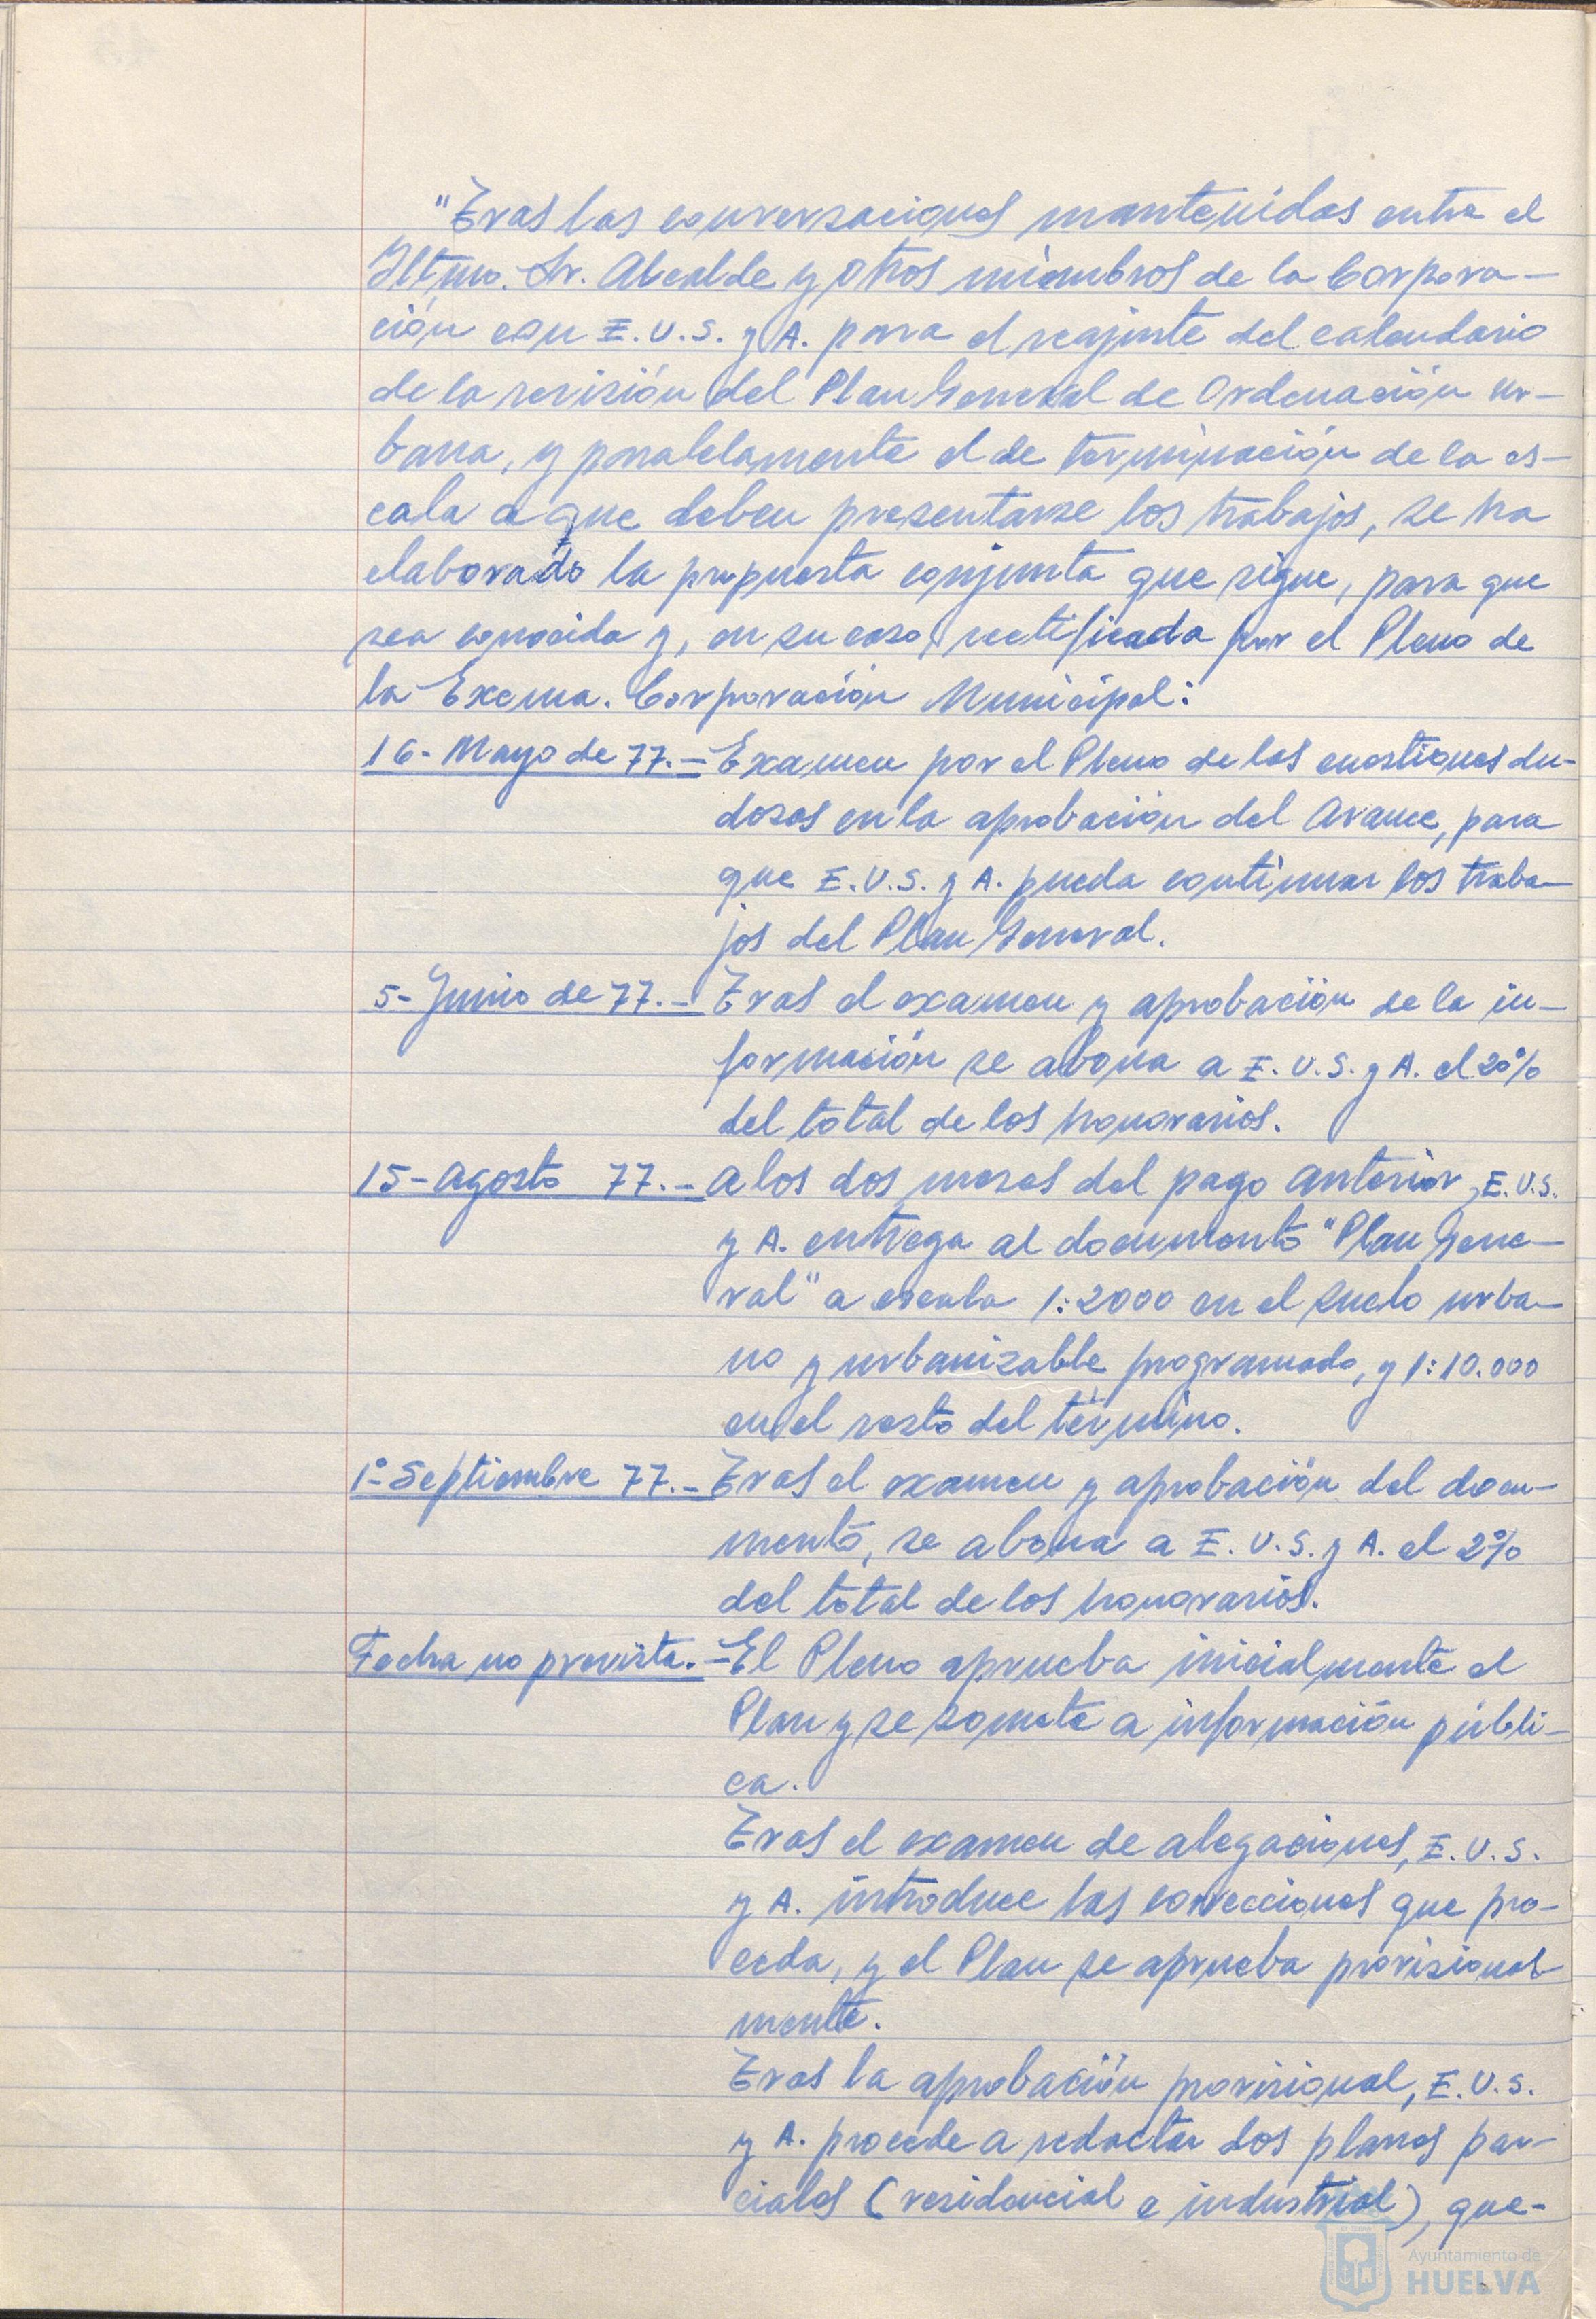 "Tras las conversaciones mantenidas entre el
Iltmo. Sr. Alcalde y otros miembros de la Corpora-
ción con E.U.S. y A. para el reajuste del calendario
de la revisión del Plan General de Ordenación Ur-
bana, y paralelamente el de terminación de la es-
cala a que deben presentarse los trabajos, se ha
elaborado la propuesta conjunta que sigue, para que
sea conocida y, en su caso, rectificada por el Pleno de
la Excma. Corporación Municipal:
16- Mayo de 77.- Examen por el Pleno de las cuestiones du-
dosas en la aprobación del Avance, para
que E.U.S. y A. pueda continuar los traba-
jos del Plan General.
5- Junio de 77.- Tras el examen y aprobación de la in-
formación se abona a E.U.S. y A. el 20%
del total de los honorarios.
15- Agosto 77.- A los dos meses del pago anterior, E.U.S.
y A. entrega al documento "Plan Gene-
ral" a escala 1:2000 en el suelo urba-
no y urbanizable programado, y 1:10.000
en el resto del término.
1º- Septiembre 77.- Tras el examen y aprobación del docu-
mento, se abona a E.U.S. y A. el 2%
del total de los honorarios.
Fecha no prevista.- El Pleno aprueba inicialmente el
Plan y se somete a información públi-
ca.
Tras el examen de alegaciones, E.U.S.
y A. introduce las correcciones que pro-
ceda, y el Plan se aprueba provisional-
mente.
Tras la aprobación provisional, E.U.S.
y A. procede a redactar dos planos par-
ciales (residencial e industrial), que-
Ayuntamiento de
HUELVA